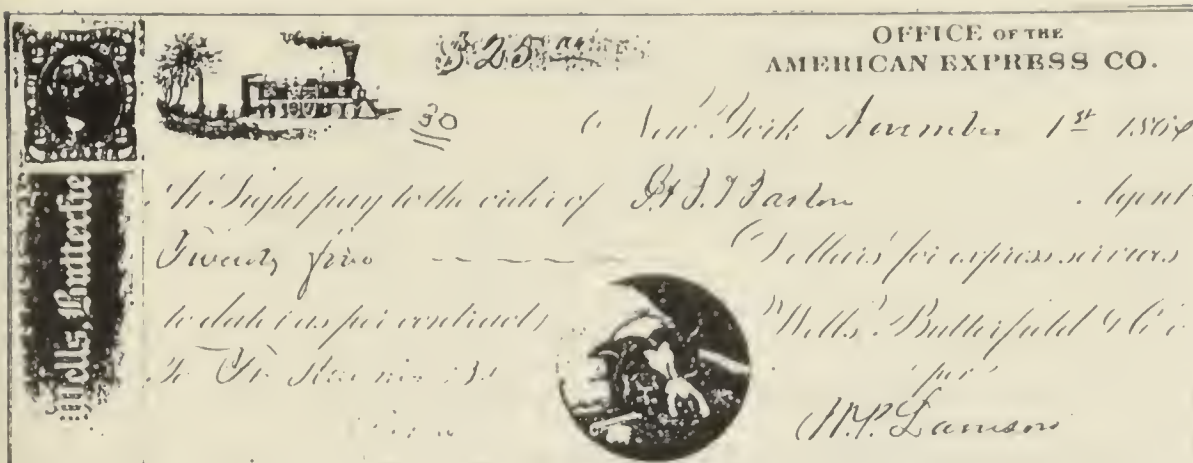 $25
OFFICE OF THE
AMERICAN EXPRESS CO.
30
New York November 1st 1864
At Sight pay to the order of Barton Agent
Twenty five Dollars for express services
to date as per contract Wells, Butterfield & Co
To per
W.P. Lamson
Wells, Butterfie